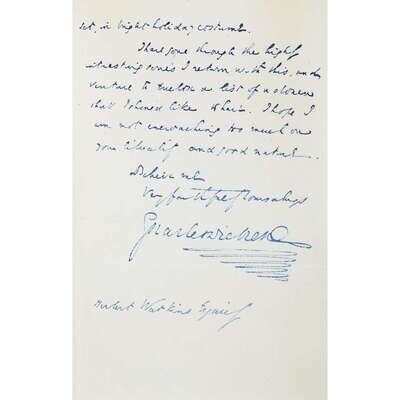 set, in bright holiday costume.
I have gone through the highly
interesting series I return with this, and
venture to enclose a list of a dozen
I shall
I hope I
am not encroaching too much on
your liberality and good nature.
Believe me
Very faithfully Yours always
Charles Dickens
Herbert Watkins Esquire